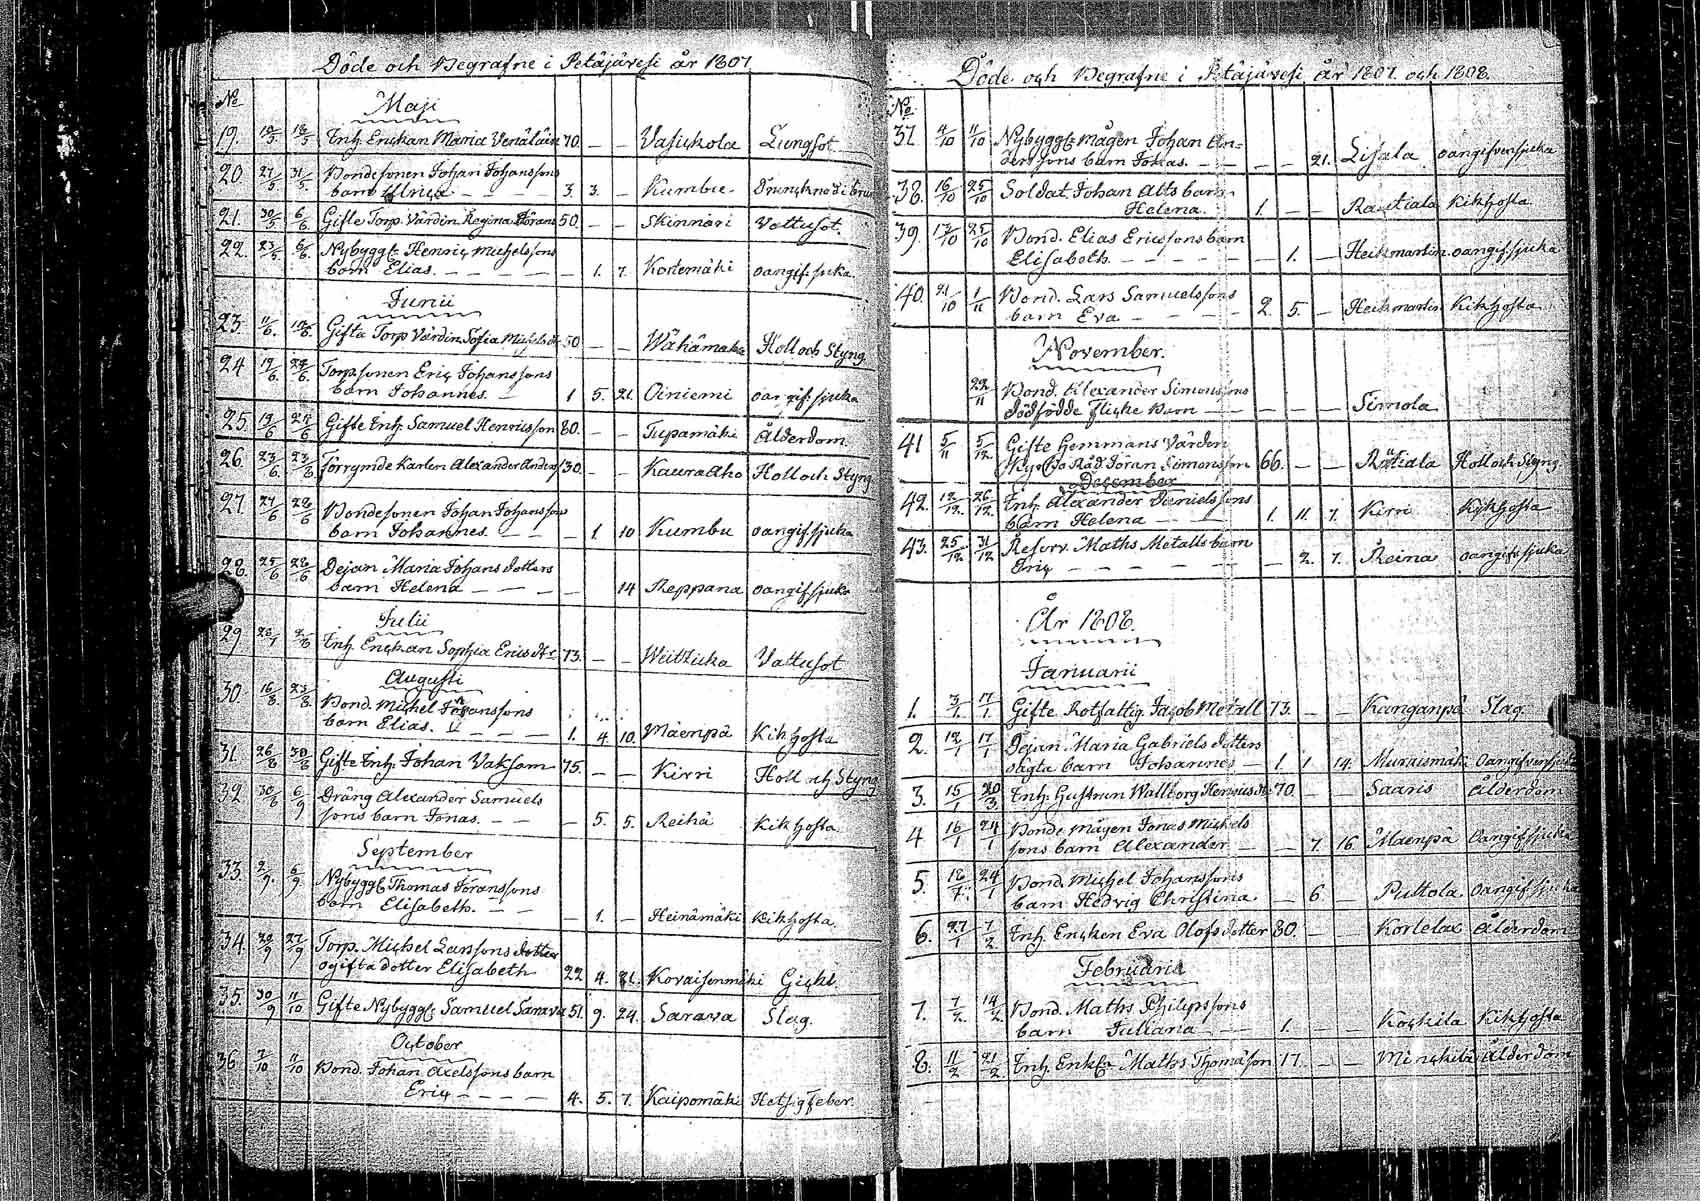 Döde och Begrafne i Petäjävesi år 1807
No
Maji
19. 10/5 18/5 Inh. Enckan Maria Venäläin 70. — — Vasickola Lungsot
20 27/5 31/5 Bondesonen Johan Johanssons
barn Ulrica — — 3. 3. — Kumbu Drunknad i brun
21. 30/5 6/6 Gifte Torp. Värdin Regina Göran 50. — — Skinnari Vattusot
22. 23/5 6/6 Nybygg. Henric Michelssons
barn Elias. — — — — — 1. 7. Kortemäki oangif. sjuka
Junii
23 11/6. 18/6 Gifta Torp Värdin Sofia Michelsdr 50 — — Wähämäki Håll och Styng
24 19/6. 28/6 Torpsonen Eric Johanssons
barn Johannes. — 1 5. 21. Oiniemi oangif: sjuka
25. 19/6 21/6 Gifte Inh. Samuel Henricsson 80. — — Tupamäki Ålderdom
26. 23/6 23/6 Förrymde Karlen Alexander Anders 30. — — Kauraaho Håll och Styng
27. 27/6 28/6 Bondesonen Johan Johansson
barn Johannes. — — — — 1 10 Kumbu oangif. sjuka
28. 25/6 28/6 Dejan Maria Johans dotters
barn Helena — — — — 14 Reppana oangif. sjuka
Julii
29 26/7 2/8 Inh. Enckan Sophia Ericsdr 73. — — Wiitzicka Vattusot
Augusti
30. 16/8 23/8 Bond. Michel Johanssons
barn Elias. 1. 4. 10. Mäenpä Kikhosta
31. 26/8 30/8 Gifte Inh. Johan Vaksam 75. — — Kirri Håll och Styng
32. 30/8 6/9 Dräng Alexander Samuels
sons barn Jonas. — — — 5. 5. Reihä Kikhosta
September
33 2/9. 6/9 Nybygg. Thomas Göranssons
barn Elisabeth. — — — 1. — Heinämäki Kikhosta
34. 20/9 27/9 Torp. Michel Larssons dotter
ogifta dotter Elisabeth 22 4. 21. Kovaisenmäki Gickt.
35. 30/9 11/10 Gifte Nybygg. Samuel Sarava 51. 9. 24. Sarava Slag.
October
36 7/10 11/10 Bond. Johan Axelssons barn
Eric — — — — 4. 5. 7. Kaipomäki Hetsig Feber.
Döde och Begrafne i Petäjävesi år 1807. och 1808.
No
37. 4/10 11/10 Nybygg. mågen Johan An=
derssons barn Jonas. — — — — 21. Lisala oangifven sjuka
38. 16/10 25/10 Soldat Johan Alts barn
Helena. 1. — — Rautiala Kikhosta
39. 17/10 25/10 Bond. Elias Ericssons barn
Elisabeth — — — — — — 1. — Heikmartin oangif. sjuka
40. 21/10 1/11 Bond. Lars Samuelssons
barn Eva — — — — 2. 5. — Heikmartin Kikhosta
November.
22/11 Bond. Alexander Simonssons
dödfödde Flicke Barn — — — — — Simola
41 5/11 5/12. Gifte Hemmans Värden
Kyrcko Råd. Göran Simonsson 66. — — Rätiala Håll och Styng
December
42. 12/12. 26/12. Inh. Alexander Danielssons
barn Helena — — 1. 11. 7. Kirri Kikhosta
43. 25/12. 31/12 Reserv. Maths Metalls barn
Eric — — — — — 2. 7. Reina oangif. sjuka
År 1808.
Januarii
1. 3/1. 17/1 Gifte Rotfattig. Jacob Metall 73. — — Kanganpä Slag.
2. 12/1 17/1 Dejan Maria Gabriels dotters
oägta barn Johannes — 1. 1 14. Muraismäki Oangifven sjuk
3. 15/1 20/3 Inh. Hustrun Wallborg Henricsdr 70. — — Saaris Ålderdom
4 16/1 24/1 Bonde mågen Jonas Michels
sons barn Alexander — — 7. 16. Mäenpä Oangif. sjuka
5. 18/1. 24/1 Bond. Michel Johanssons
barn Hedvig Christina — 6 — Puttola oangif. sjuka
6. 27/1 7/2 Inh. Encken Eva Olofs dotter 80. — — Kortelax Ålderdom
Februarii
7. 7/2. 14/2 Bond. Maths Philipssons
barn Juliana — — 1. — Kockila Kikhosta
8. 11/2 21/2. Inh. Enkl. Maths Thomasson 77. — — Minckilä Ålderdom